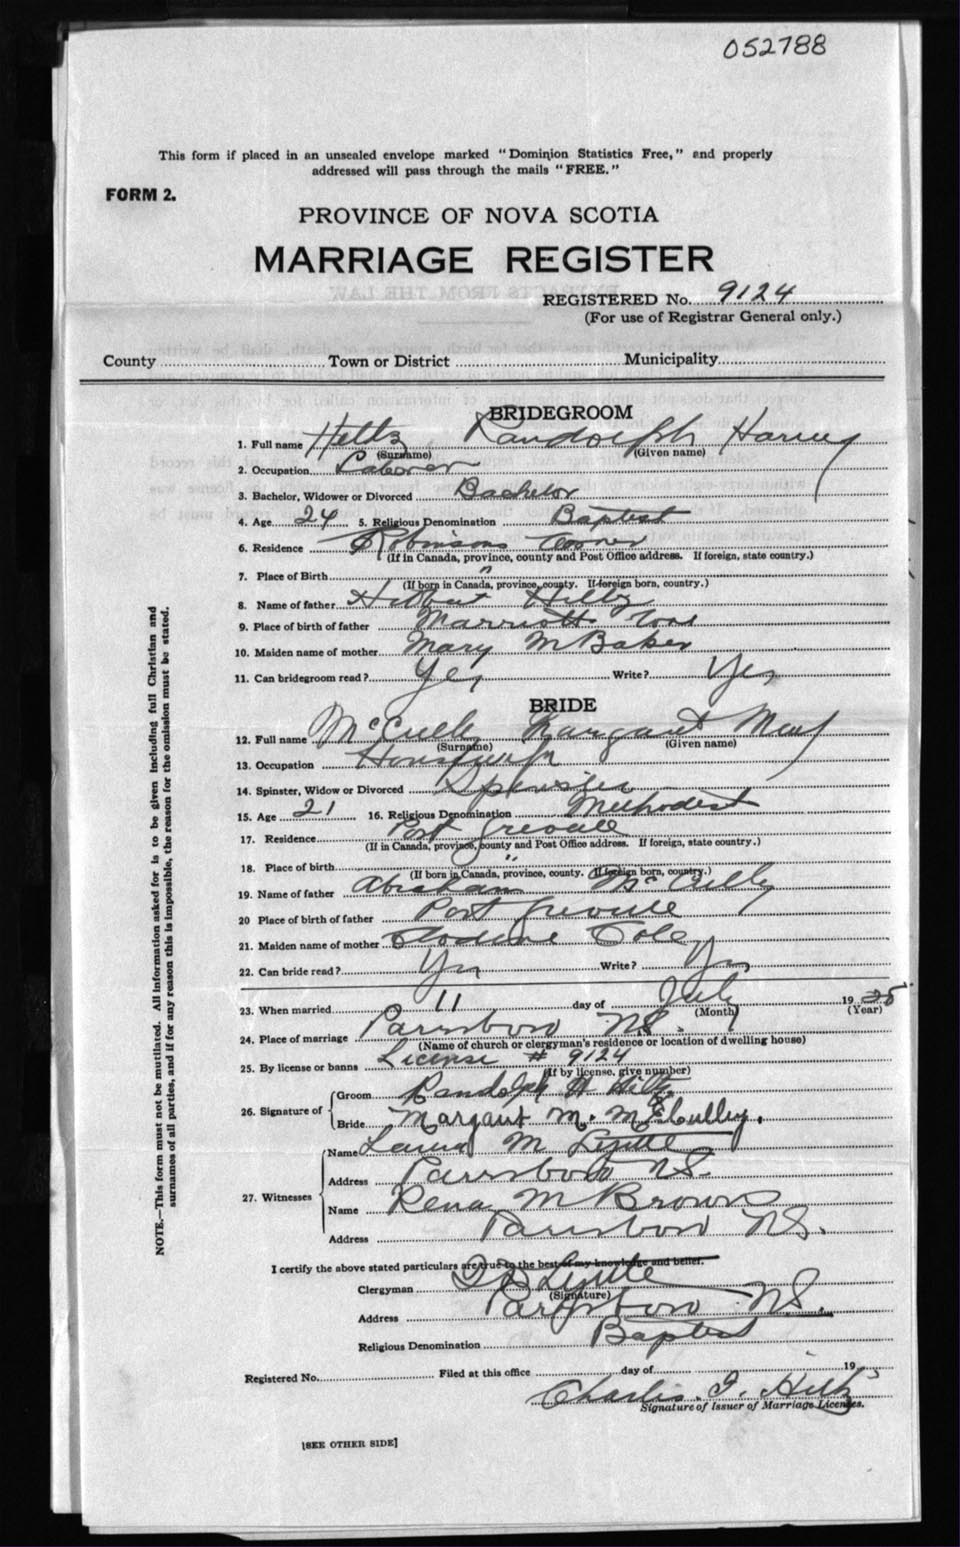 052788
This form if placed in an unsealed envelope marked "Dominion Statistics Free," and properly
addressed will pass through the mails "FREE."
FORM 2.
PROVINCE OF NOVA SCOTIA
MARRIAGE REGISTER
REGISTERED No. 9124
(For use of Registrar General only.)
County Town or District Municipality
BRIDEGROOM
1. Full name Hiltz Randolph Harvey
(Surname) (Given name)
2. Occupation Laborer
3. Bachelor, Widower or Divorced Bachelor
4. Age 24 5. Religious Denomination Baptist
6. Residence Robinsons Corner
(If in Canada, province, county and Post Office address. If foreign, state country.)
7. Place of Birth "
(If born in Canada, province, county. If foreign born, country.)
8. Name of father Hiltz
9. Place of birth of father Marriotts Cove
10. Maiden name of mother Mary M Baker
11. Can bridegroom read? Yes Write? Yes
BRIDE
12. Full name McCully Margaret May
(Surname) (Given name)
13. Occupation
14. Spinster, Widow or Divorced Spinster
15. Age 21 16. Religious Denomination Methodist
17. Residence Port Greville
(If in Canada, province, county and Post Office address. If foreign, state country.)
18. Place of birth "
(If born in Canada, province, county. If foreign born, country.)
19. Name of father Abraham McCully
20 Place of birth of father Port Greville
21. Maiden name of mother Cole
22. Can bride read? Yes Write? Yes
23. When married 11 day of July 1925
(Month) (Year)
24. Place of marriage Parrsboro N.S.
(Name of church or clergyman's residence or location of dwelling house)
25. By license or banns License # 9124
(If by license, give number)
26. Signature of Groom Randolph H Hiltz
Bride Margaret M. McCulley.
27. Witnesses Name Laura M Lyttle
Address Parrsboro N.S.
Name Rena M Brown
Address Parrsboro N.S.
I certify the above stated particulars are true to the best of my knowledge and belief.
Clergyman Lyttle
(Signature)
Address Parrsboro N.S.
Religious Denomination Baptist
Registered No. Filed at this office day of 19
Charles I. Hiltz
Signature of Issuer of Marriage Licenses.
[SEE OTHER SIDE]
NOTE.—This form must not be mutilated. All information asked for is to be given including full Christian and
surnames of all parties, and if for any reason this is impossible, the reason for the omission must be stated.